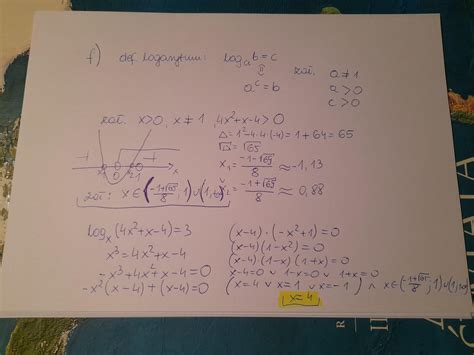 f) def. logarytmu: log_a b = c
⇕
a^c = b
zał. a ≠ 1
a > 0
c > 0
zał. x > 0, x ≠ 1, 4x² + x - 4 > 0
Δ = 1² - 4·4·(-4) = 1 + 64 = 65
√Δ = √65
x₁ = (-1-√65)/8 ≈ -1,13
x₂ = (-1+√65)/8 ≈ 0,88
0 1 x
zał: x ∈ ((-1+√65)/8, 1) ∪ (1, ∞)
log_x (4x² + x - 4) = 3
x³ = 4x² + x - 4
-x³ + 4x² + x - 4 = 0
-x²(x-4) + (x-4) = 0
(x-4)·(-x²+1) = 0
(x-4)(1-x²) = 0
(x-4)(1-x)(1+x) = 0
x-4=0 ∨ 1-x=0 ∨ 1+x=0
(x=4 ∨ x=1 ∨ x=-1) ∧ x ∈ ((-1+√65)/8, 1) ∪ (1, ∞)
x = 4